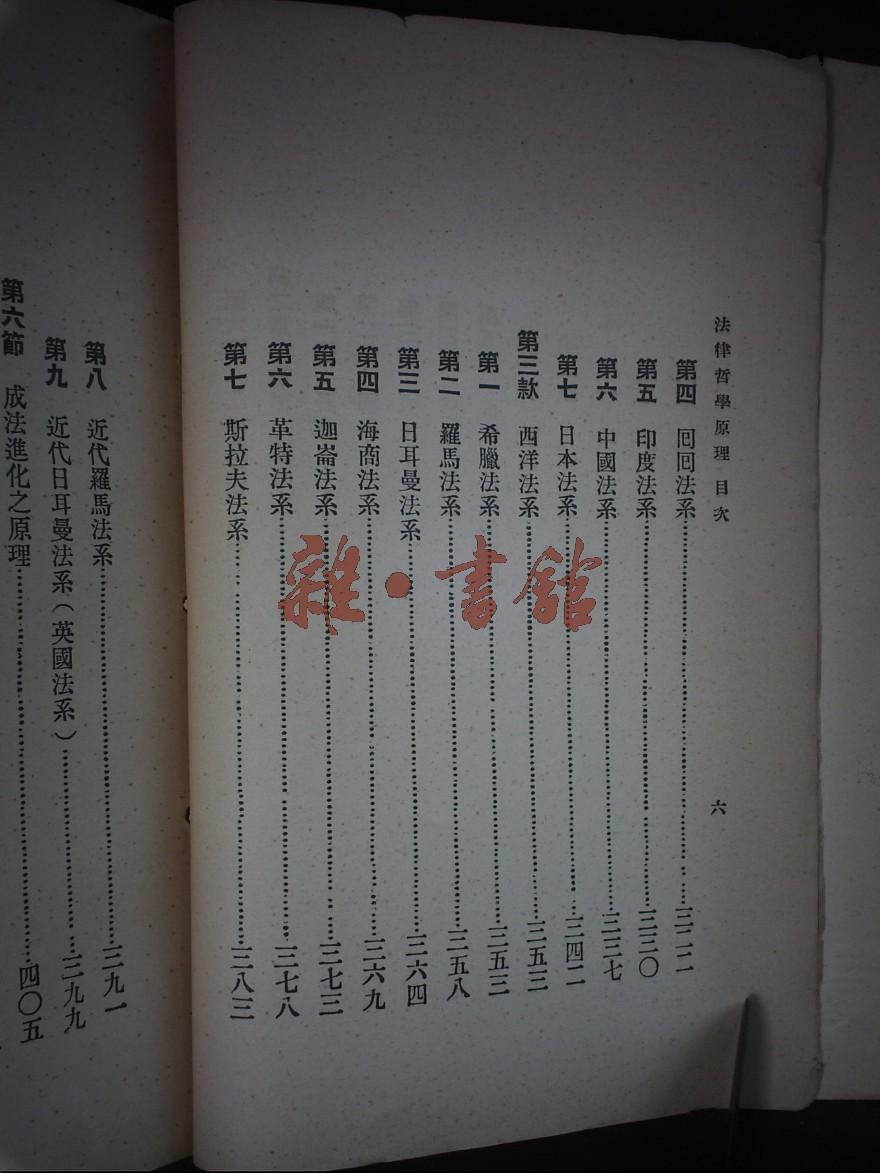 法律哲學原理 目次
六
第四 囘囘法系 三二二
第五 印度法系 三三〇
第六 中國法系 三三七
第七 日本法系 三四二
第三款 西洋法系 三五三
第一 希臘法系 三五三
第二 羅馬法系 三五八
第三 日耳曼法系 三六四
第四 海商法系 三六九
第五 迦崙法系 三七三
第六 革特法系 三七八
第七 斯拉夫法系 三八三
第八 近代羅馬法系 三九一
第九 近代日耳曼法系（英國法系） 三九九
第六節 成法進化之原理 四〇五
雜·書館